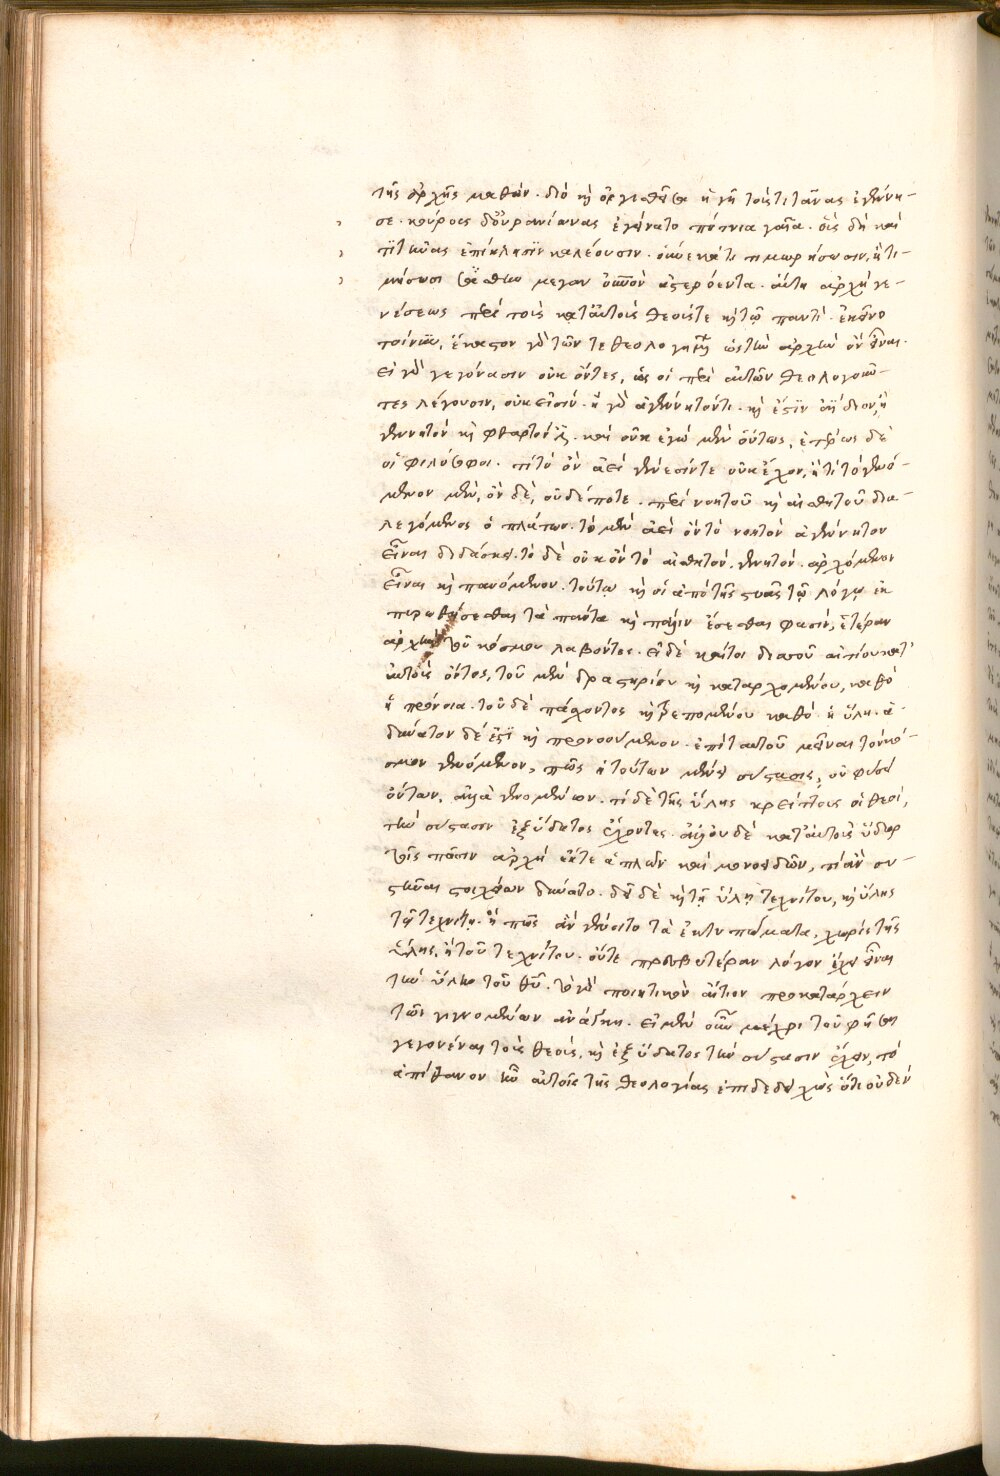 τῆς ἀρχῆς μαθών· διὸ καὶ ὀργισθεῖσα ἡ γῆ τοὺς τιτᾶνας ἐγέννη-
σε· κούρους δ' οὐρανίωνας ἐγείνατο πότνια γαῖα· οὓς δὴ καὶ
τιτῆνας ἐπίκλησιν καλέουσιν· οὕνεκά τι τιμωρήσωσιν, ἢ τι-
μήσωσι μέγαν οὐρανὸν ἀστερόεντα· αὕτη ἀρχὴ γε-
νέσεως περὶ τοὺς κατ' αὐτοὺς θεούς τε καὶ τῷ παντί· ἐκεῖνο
τοίνυν, ἕκαστον γὰρ τῶν τεθεολογημένων ὡς τὴν ἀρχὴν ὂν εἶναι·
εἰ γὰρ γεγόνασιν οὐκ ὄντες, ὡς οἱ περὶ αὐτῶν θεολογοῦν-
τες λέγουσιν, οὐκ εἰσίν· ἢ γὰρ ἀγέννητόν τι· καὶ ἔστιν ἀΐδιον, ἢ
γεννητὸν καὶ φθαρτόν ἐστι· καὶ οὐκ ἐγὼ μὲν οὕτως, ἑτέρως δὲ
οἱ φιλόσοφοι· τί τὸ ὂν ἀεὶ γένεσίν τε οὐκ ἔχον, ἢ τί τὸ γενό-
μενον μὲν, ὂν δὲ, οὐδέποτε· περὶ νοητοῦ καὶ αἰσθητοῦ δια-
λεγόμενος ὁ πλάτων· τὸ μὲν ἀεὶ ὂν τὸ νοητὸν ἀγέννητον
εἶναι διδάσκει· τὸ δὲ οὐκ ὂν τὸ αἰσθητόν, γενητόν· ἀρχόμενον
εἶναι καὶ παυόμενον· τούτῳ καὶ οἱ ἀπὸ τῆς στοᾶς τῷ λόγῳ ἐκ
πυρωθήσεσθαι τὰ πάντα καὶ πάλιν ἔσεσθαι φασίν, ἑτέραν
ἀρχὴν τοῦ κόσμου λαβόντος· εἰ δὲ καίτοι δισσοῦ αἰτίου κατ'
αὐτοὺς ὄντος, τοῦ μὲν δραστηρίου καὶ καταρχομένου, καθὸ
ἡ πρόνοια· τοῦ δὲ πάσχοντος καὶ τρεπομένου καθὸ ἡ ὕλη· ἀ-
δύνατον δέ ἐστι καὶ προνοούμενον· ἐπὶ ταυτοῦ μεῖναι τὸν κό-
σμον γενόμενον, πῶς ἡ τούτων μένει σύστασις, οὐ φύσει
ὄντων, ἀλλὰ γενομένων· τί δὲ τῆς ὕλης κρείττους οἱ θεοί,
τὴν σύστασιν ἐξ ὕδατος ἔχοντες· ἀλλ' οὐδὲ κατ' αὐτοὺς ὕδωρ
τοῖς πᾶσιν ἀρχή ἐκ τε ἁπλῶν καὶ μονοειδῶν, τί ἂν συ-
στῆναι στοιχείων δύναιτο· δεῖ δὲ καὶ τῇ ὕλῃ τεχνίτου, καὶ ὕλης
τῷ τεχνίτῃ· ἢ πῶς ἂν γένοιτο τὰ ἐκτυπώματα, χωρὶς τῆς
ὕλης, ἢ τοῦ τεχνίτου· οὔτε πρεσβυτέραν λόγον ἔχει εἶναι
τὴν ὕλην τοῦ θεοῦ· τὸ γὰρ ποιητικὸν αἴτιον προκατάρχειν
τῶν γιγνομένων ἀνάγκη· εἰ μὲν οὖν μέχρι τοῦ φῆσαι
γεγονέναι τοὺς θεοὺς, καὶ ἐξ ὕδατος τὴν σύστασιν ἔχειν, τὸ
ἀπίθανον ἦν αὐτοῖς τῆς θεολογίας ἐπιδεδειχὼς ὅτι οὐδὲν